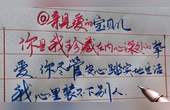 @亲爱的宝贝儿
你是我珍藏在内心深处的挚
爱，你尽管安心踏实地生活
我心里装不下别人